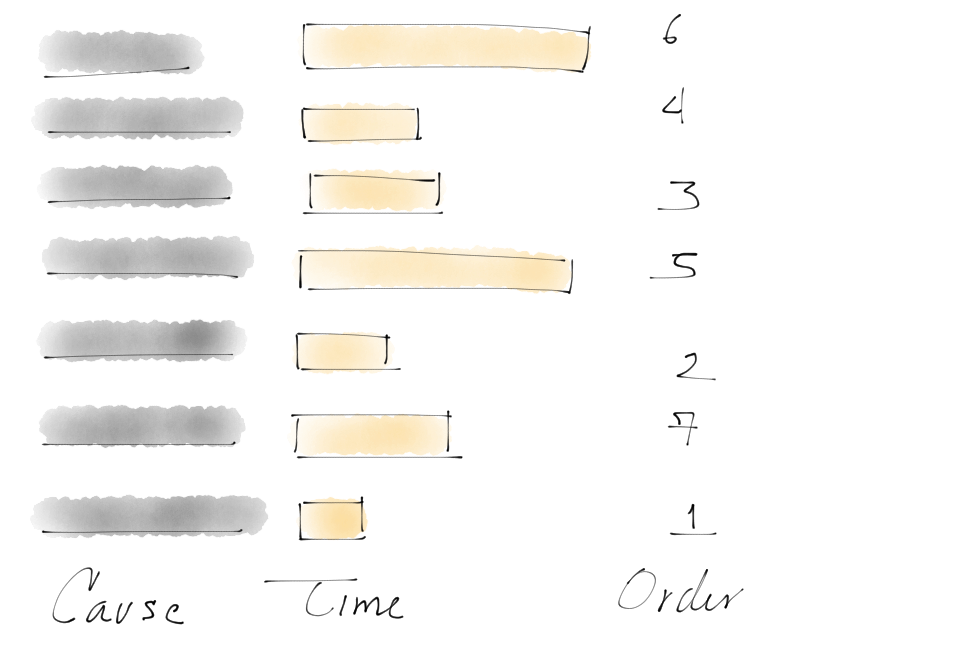 6
4
3
5
2
7
1
Cause Time Order